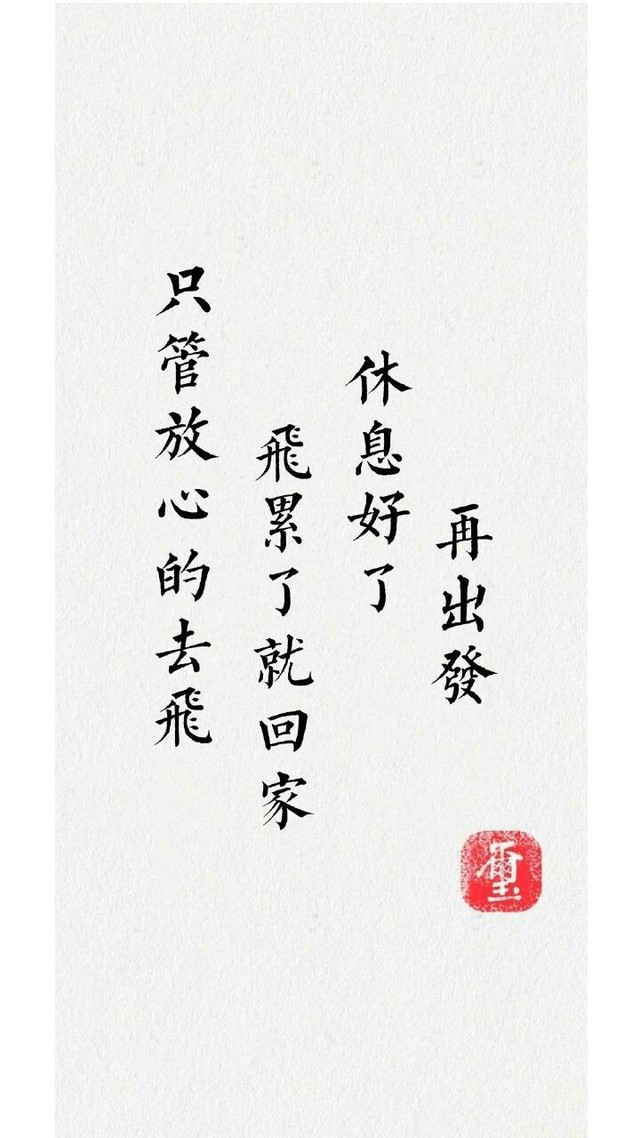 只管放心的去飛
飛累了就回家
休息好了
再出發